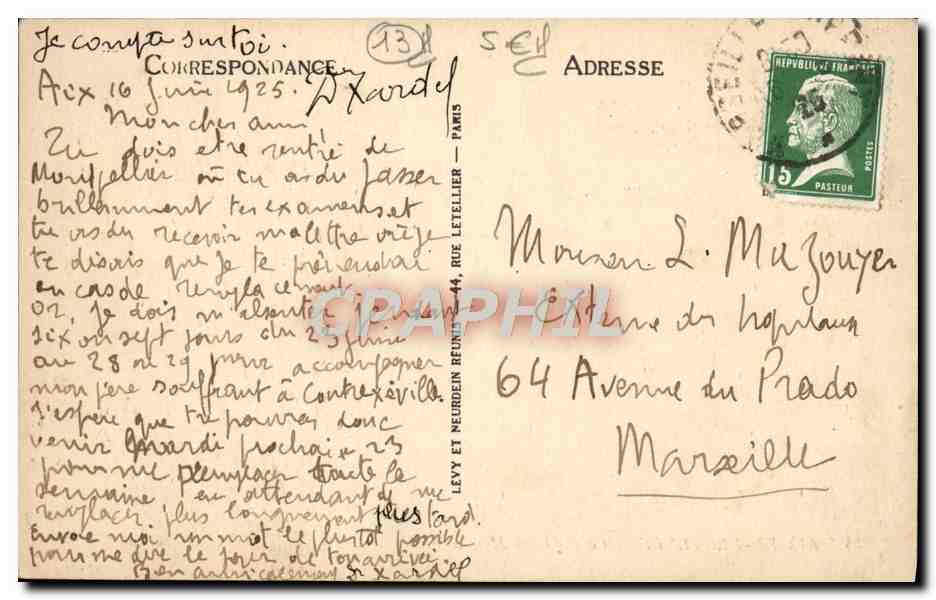 Je compte sur toi.
13
5€
CORRESPONDANCE
ADRESSE
Dr Xardel
Aix 16 Juin 1925.
Mon cher ami
Tu dois etre rentré de
Montpellier où tu as du passer
brillamment tes examens et
tu as du recevoir ma lettre où je
te disais que je te préviendrai
en cas de remplacement
Or, je dois m'absenter pendant
six ou sept jours du 23 juin
au 28 ou 29 pour accompagner
mon père souffrant à Contrexéville.
J'espère que tu pourras donc
venir mardi prochain 23
pour me remplacer toute la
semaine en attendant de me
remplacer plus longuement plus tard.
Envoie moi un mot le plustot possible
pour me dire le jour de ton arrivée
Bien amicalement Dr Xardel
LÉVY ET NEURDEIN RÉUNIS, 44, RUE LETELLIER — PARIS
REPUBLIQUE FRANÇAISE
POSTES
15
PASTEUR
25
Monsieur L. Mazouyer
Externe des hopitaux
64 Avenue du Prado
Marseille
CPAPHIL